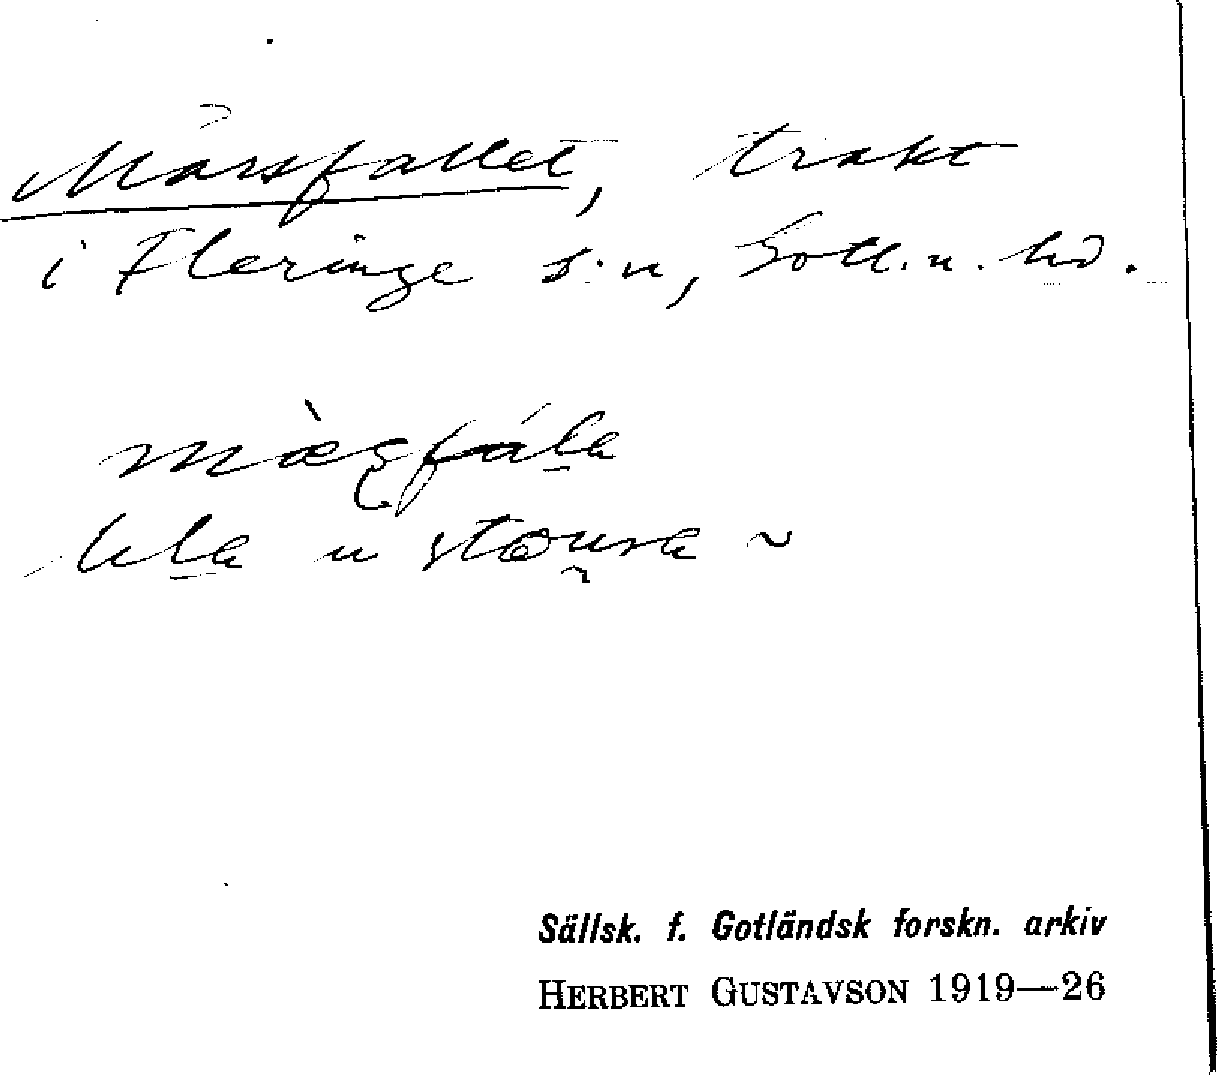 Mårsfallet, trakt
i Fleringe s:n, Gotl. n. hd.
lila u stoura ~
Sällsk. f. Gotländsk forskn. arkiv
HERBERT GUSTAVSON 1919—26